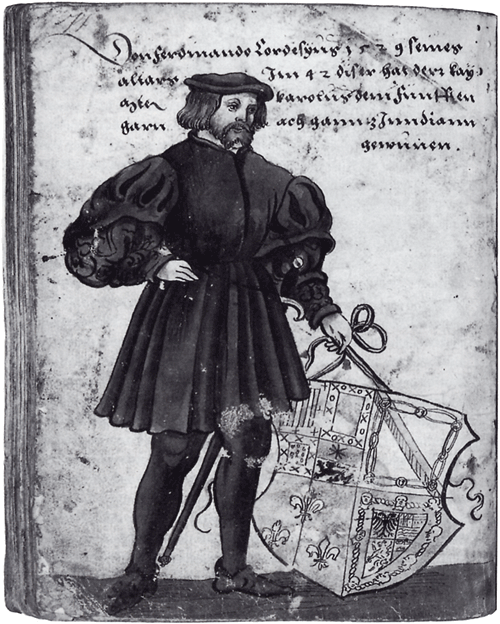 Don ferdinando Cordesyus 1529 seines
altars Im 42 diser hat derr kay
karolus dem funfften
garn ach ganntz Inndiann
gewunen.